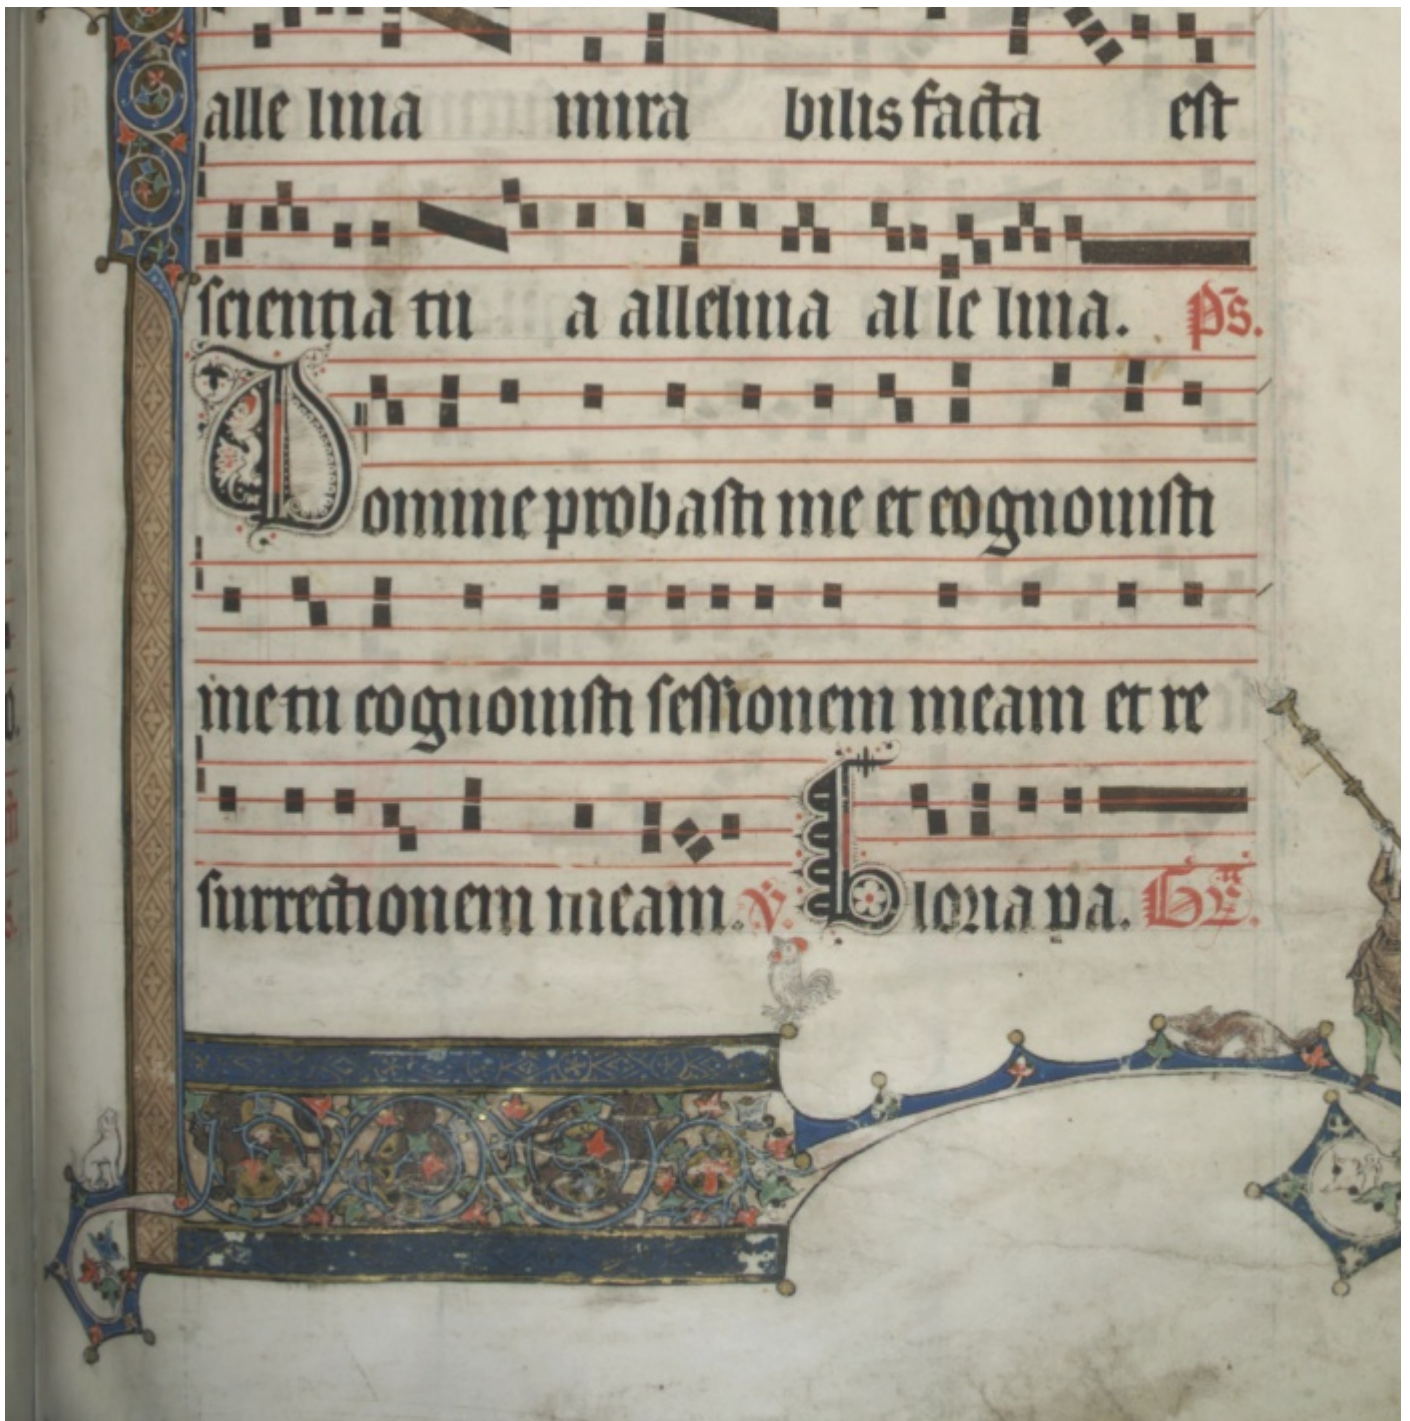 alle luia mira bilis facta est
scientia tu a alleluia al le luia. ps.
Domine probasti me et cognouisti
me tu cognouisti sessionem meam et re
surrectionem meam. V. Gloria pa.